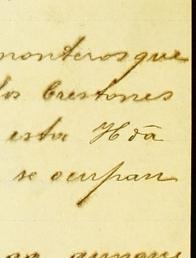 monteros que
los Crestones
esta Hda
se ocupan